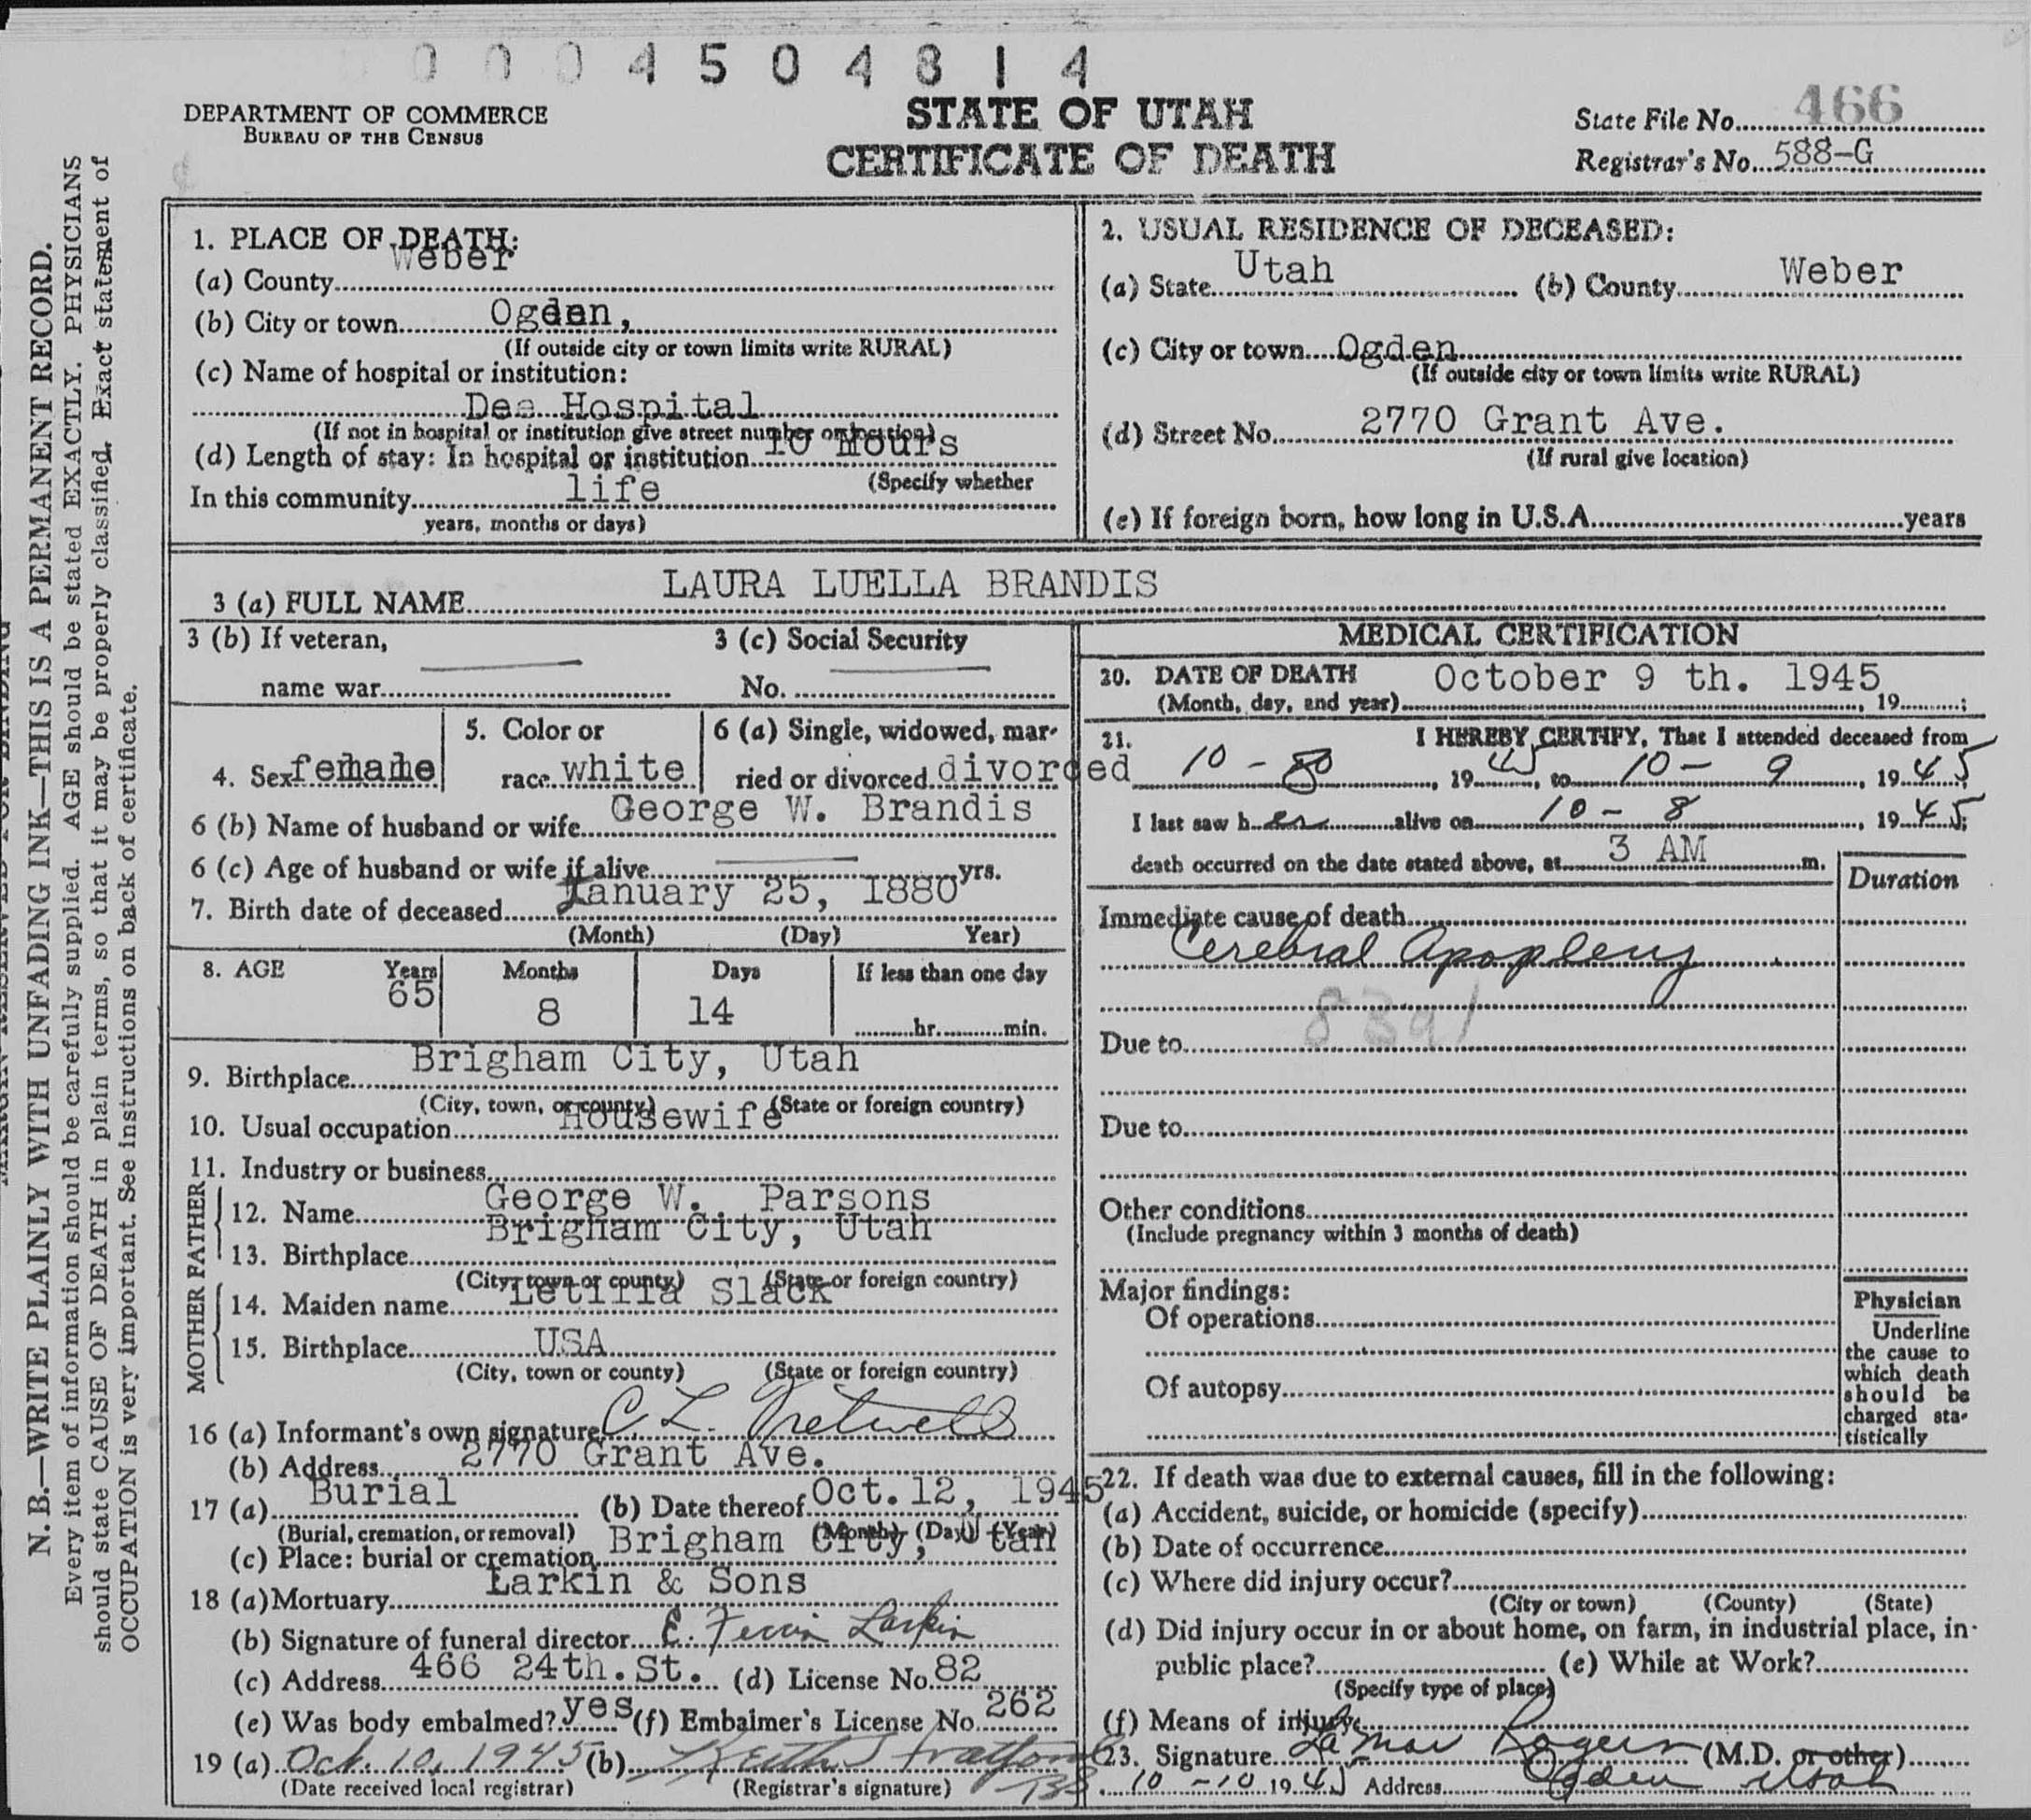 0004504814
DEPARTMENT OF COMMERCE
BUREAU OF THE CENSUS
STATE OF UTAH
CERTIFICATE OF DEATH
State File No. 466
Registrar's No. 588-G
N. B.—WRITE PLAINLY WITH UNFADING INK—THIS IS A PERMANENT RECORD.
Every item of information should be carefully supplied. AGE should be stated EXACTLY. PHYSICIANS
should state CAUSE OF DEATH in plain terms, so that it may be properly classified. Exact statement of
OCCUPATION is very important. See instructions on back of certificate.
1. PLACE OF DEATH:
(a) County Weber
(b) City or town Ogden,
(If outside city or town limits write RURAL)
(c) Name of hospital or institution:
Dee Hospital
(If not in hospital or institution give street number or location)
(d) Length of stay: In hospital or institution 10 Hours
(Specify whether
In this community life
years, months or days)
2. USUAL RESIDENCE OF DECEASED:
(a) State Utah (b) County Weber
(c) City or town Ogden
(If outside city or town limits write RURAL)
(d) Street No. 2770 Grant Ave.
(If rural give location)
(e) If foreign born, how long in U.S.A. years
3 (a) FULL NAME LAURA LUELLA BRANDIS
3 (b) If veteran, 3 (c) Social Security
name war No.
4. Sex female 5. Color or race white 6 (a) Single, widowed, married or divorced divorced
6 (b) Name of husband or wife George W. Brandis
6 (c) Age of husband or wife if alive yrs.
7. Birth date of deceased January 25, 1880
(Month) (Day) Year)
8. AGE Years Months Days If less than one day
65 8 14 hr. min.
9. Birthplace Brigham City, Utah
(City, town, or county) (State or foreign country)
10. Usual occupation Housewife
11. Industry or business
FATHER
12. Name George W. Parsons
13. Birthplace Brigham City, Utah
(City, town or county) (State or foreign country)
MOTHER
14. Maiden name Letitia Slack
15. Birthplace USA
(City, town or county) (State or foreign country)
16 (a) Informant's own signature C L.
(b) Address 2770 Grant Ave.
17 (a) Burial (b) Date thereof Oct. 12, 1945
(Burial, cremation, or removal) (Month) (Day) (Year)
(c) Place: burial or cremation Brigham City, Utah
18 (a) Mortuary Larkin & Sons
(b) Signature of funeral director Larkin
(c) Address 466 24th. St. (d) License No. 82
(e) Was body embalmed? yes (f) Embalmer's License No. 262
19 (a) Oct. 10, 1945 (b) Keith
(Date received local registrar) (Registrar's signature)
MEDICAL CERTIFICATION
20. DATE OF DEATH October 9 th. 1945
(Month, day, and year) , 19 ;
21. I HEREBY CERTIFY, That I attended deceased from
10 - 8 , 1945, to 10 - 9 , 1945;
I last saw her alive on 10 - 8 , 1945;
death occurred on the date stated above, at 3 AM m.
Duration
Immediate cause of death
Cerebral Apoplexy
Due to
Due to
Other conditions
(Include pregnancy within 3 months of death)
Major findings:
Of operations
Of autopsy
Physician
Underline
the cause to
which death
should be
charged sta-
tistically
22. If death was due to external causes, fill in the following:
(a) Accident, suicide, or homicide (specify)
(b) Date of occurrence
(c) Where did injury occur?
(City or town) (County) (State)
(d) Did injury occur in or about home, on farm, in industrial place, in
public place? (e) While at Work?
(Specify type of place)
(f) Means of injury
23. Signature LaMar Rogers (M.D. or other)
10 - 10 1945 Address Ogden Utah